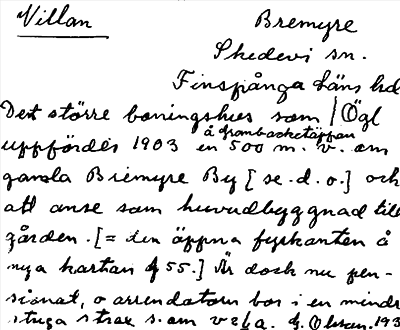 Villan
Bremyre
Skedevi sn.
Finspånga läns hd
Det större boningshus som / Ögl
å Grambacketäppan
uppfördes 1903 en 500 m. v. om
gamla Bremyre By [se. d. o.] och
att anse som huvudbyggnad till
gården. [= den öppna fyrkanten å
nya kartan 55.] Är dock nu pen-
sionat, o arrendatorn bor i en mindr
stuga strax s. om väg. G. Olsson. 193